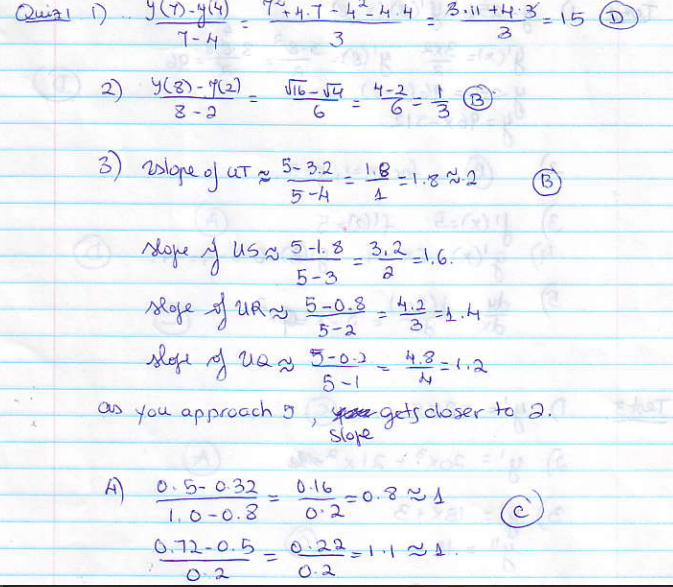 Quiz 1 1) y(7)-y(4) / 7-4 = 7²+4.7-4²-4.4 / 3 = 3.11+4.3 / 3 = 15 (D)
2) y(8)-y(2) / 8-2 = √16-√4 / 6 = 4-2 / 6 = 1/3 (B)
3) slope of UT ≈ 5-3.2 / 5-4 = 1.8 / 1 = 1.8 ≈ 2 (B)
slope of US ≈ 5-1.8 / 5-3 = 3.2 / 2 = 1.6.
slope of UR ≈ 5-0.8 / 5-2 = 4.2 / 3 = 1.4
slope of UQ ≈ 5-0.2 / 5-1 = 4.8 / 4 = 1.2
as you approach 5, slope gets closer to 2.
4) 0.5-0.32 / 1.0-0.8 = 0.16 / 0.2 = 0.8 ≈ 1 (C)
0.72-0.5 / 0.2 = 0.22 / 0.2 = 1.1 ≈ 1.